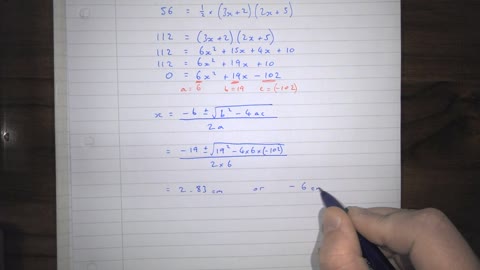 56 = 1/2 × (3x+2)(2x+5)
112 = (3x+2)(2x+5)
112 = 6x² + 15x + 4x + 10
112 = 6x² + 19x + 10
0 = 6x² + 19x - 102
a = 6 b = 19 c = (-102)
x = -b ± √b² - 4ac
2a
= -19 ± √19² - 4×6×(-102)
2×6
= 2.83 cm or -6 cm